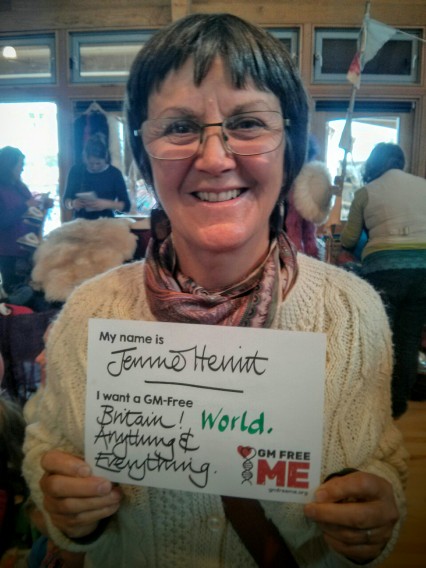 My name is
I want a GM-Free
Britain! World.
Anything &
Everything.
GM FREE
ME
gmfreeme.org